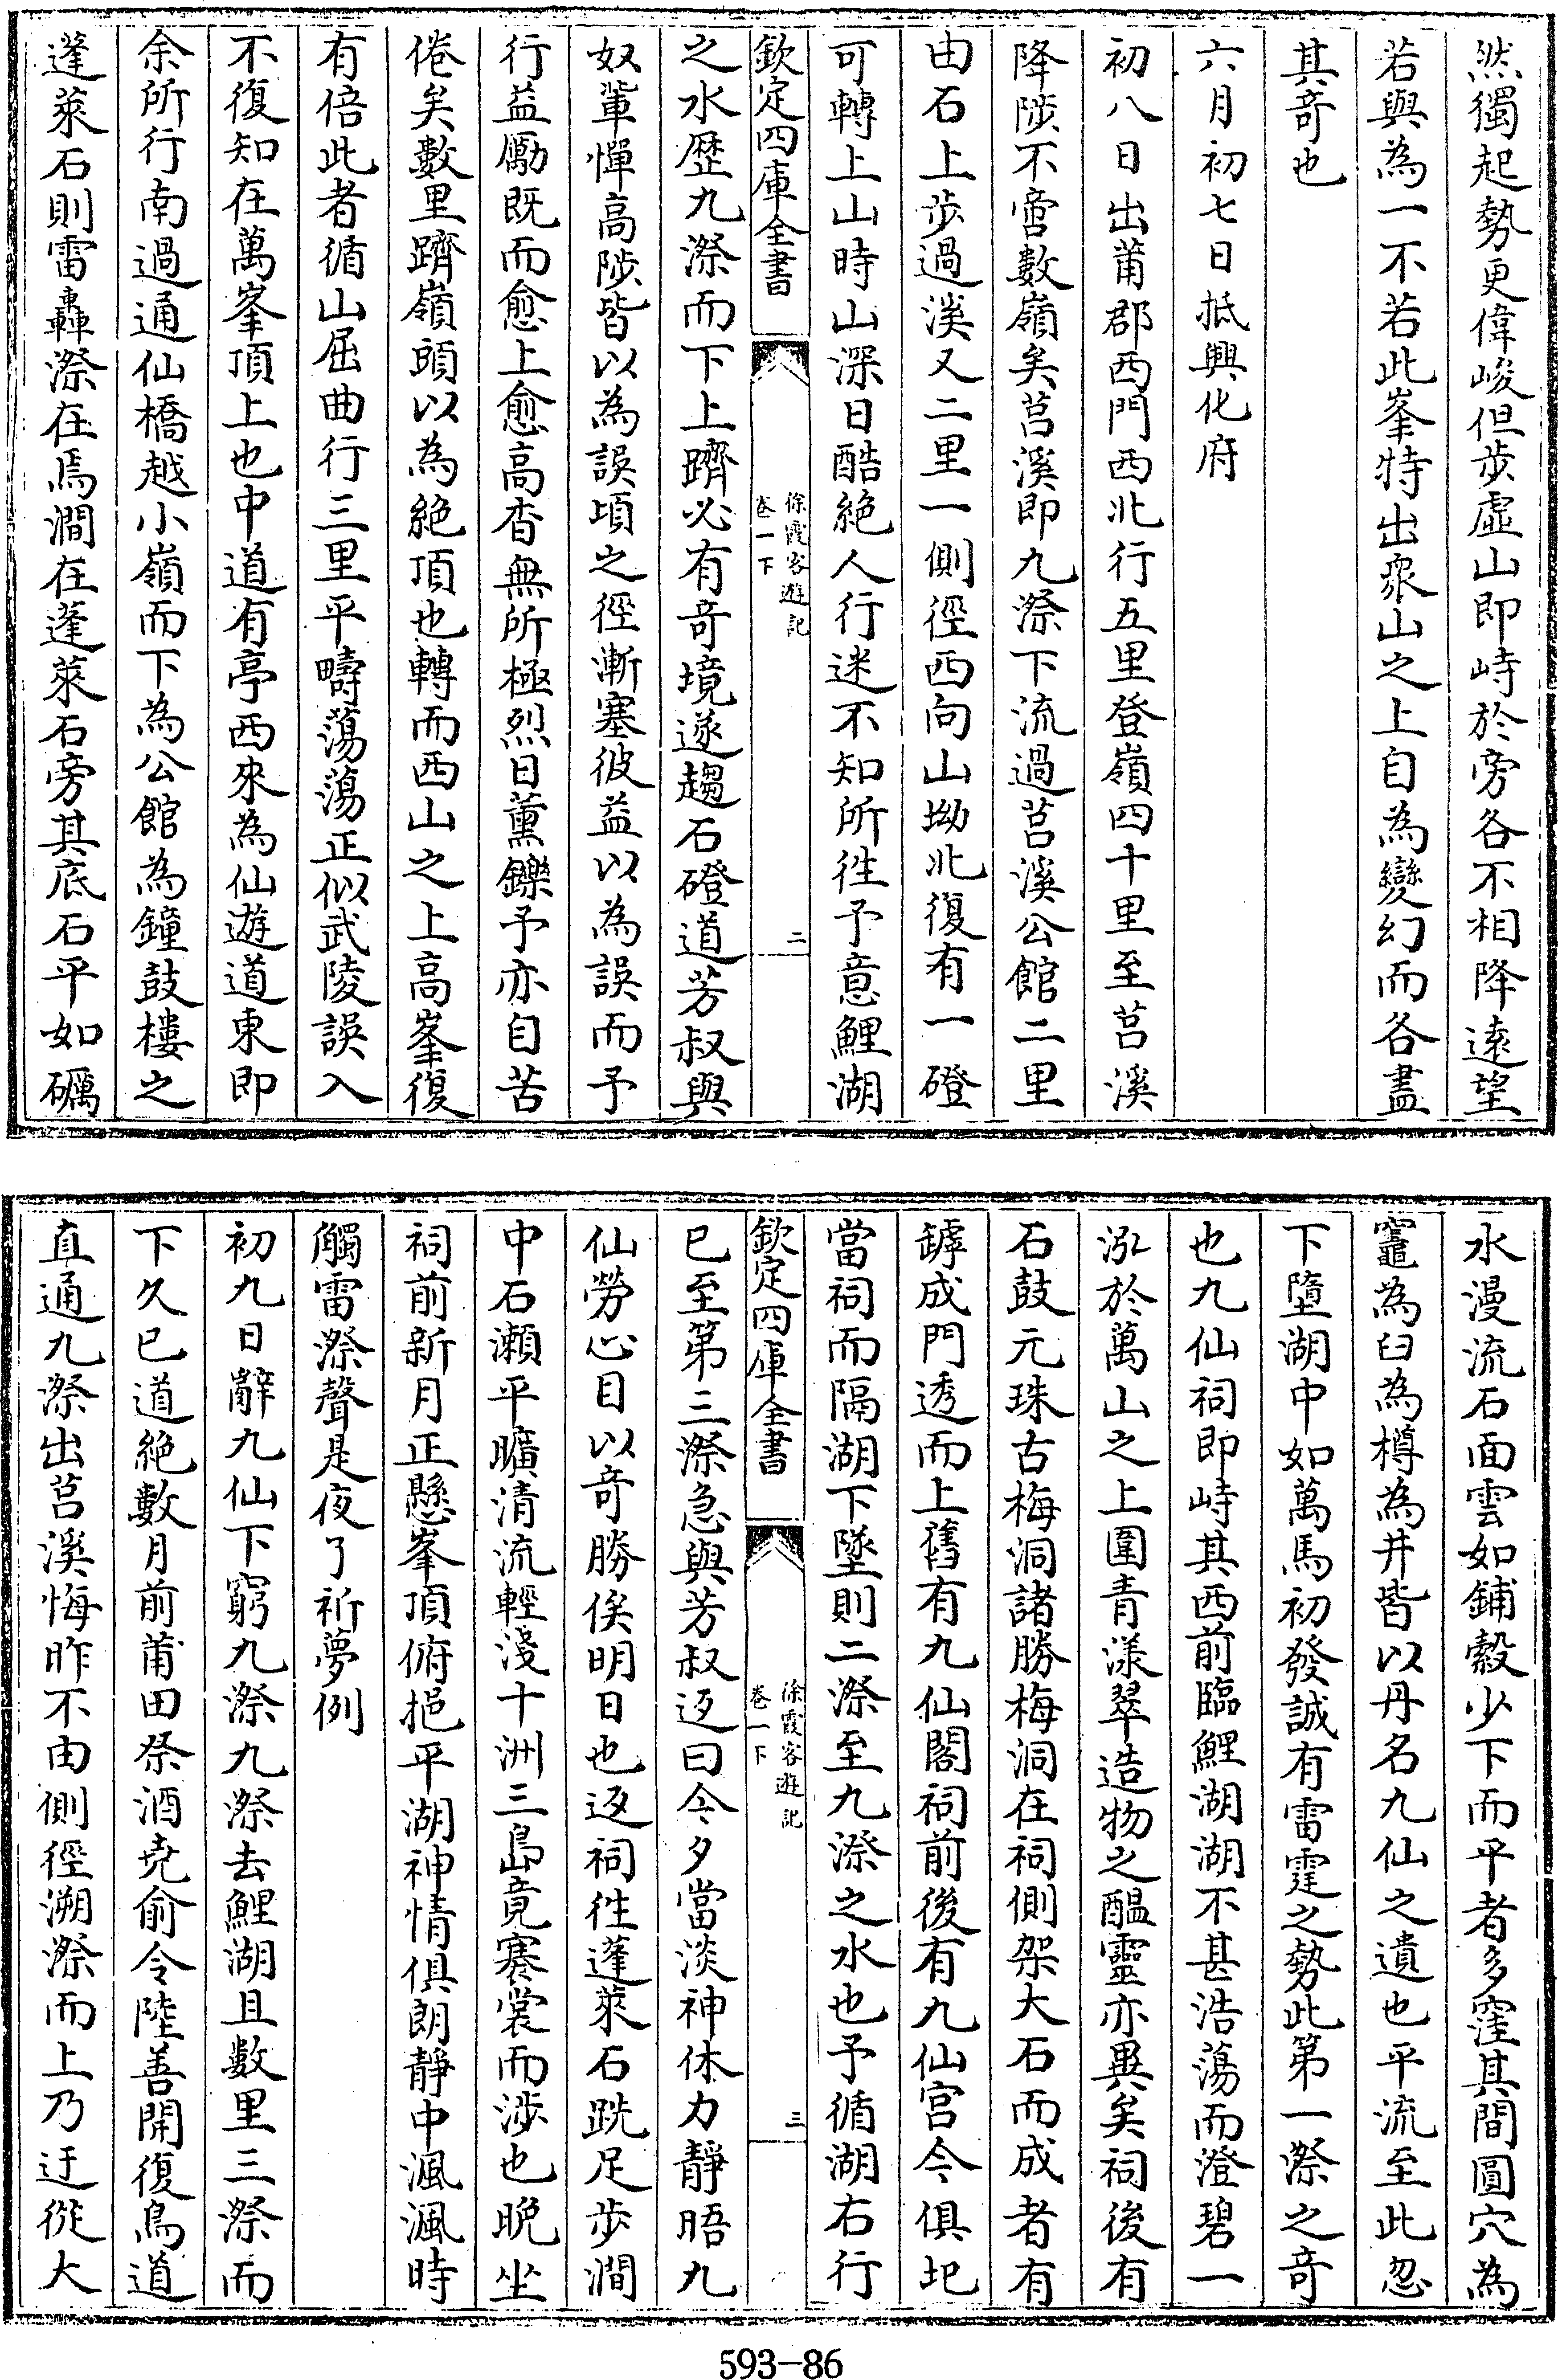 然獨起勢更偉峻但步虛山即峙於旁各不相降遠望
若與為一不若此峯特出衆山之上自為變幻而各盡
其竒也
六月初七日抵興化府
初八日出莆郡西門西北行五里登嶺四十里至莒溪
降陟不啻數嶺矣莒溪即九漈下流過莒溪公館二里
由石上步過溪又二里一側徑西向山坳北復有一磴
可轉上山時山深日酷絶人行迷不知所徃予意鯉湖
欽定四庫全書
徐霞客遊記
卷一下
二
之水歴九漈而下上躋必有竒境遂趨石磴道芳叔與
奴輩憚髙陟皆以為誤頃之徑漸塞彼益以為誤而予
行益勵既而愈上愈髙杳無所極烈日薰鑠予亦自苦
倦矣數里躋嶺頭以為絶頂也轉而西山之上髙峯復
有倍此者循山屈曲行三里平疇蕩蕩正似武陵誤入
不復知在萬峯頂上也中道有亭西來為仙遊道東即
余所行南過通仙橋越小嶺而下為公館為鐘鼓樓之
蓬萊石則雷轟漈在焉澗在蓬萊石旁其底石平如礪
水漫流石面雲如鋪縠少下而平者多窪其間圓穴為
竈為臼為樽為井皆以丹名九仙之遺也平流至此忽
下墮湖中如萬馬初發誠有雷霆之勢此第一漈之竒
也九仙祠即峙其西前臨鯉湖湖不甚浩蕩而澄碧一
泓於萬山之上圍青漾翠造物之醞靈亦異矣祠後有
石鼓元珠古梅洞諸勝梅洞在祠側架大石而成者有
罅成門透而上舊有九仙閣祠前後有九仙宫今俱圮
當祠而隔湖下墜則二漈至九漈之水也予循湖右行
欽定四庫全書
徐霞客遊記
卷一下
三
已至第三漈急與芳叔返曰今夕當淡神休力靜晤九
仙勞心目以竒勝俟明日也返祠徃蓬萊石跣足步澗
中石瀨平曠清流輕淺十洲三島竟褰裳而渉也晚坐
祠前新月正懸峯頂俯挹平湖神情俱朗靜中渢渢時
觸雷漈聲是夜了祈夢例
初九日辭九仙下窮九漈九漈去鯉湖且數里三漈而
下久已道絶數月前莆田祭酒堯俞令陸善開復鳥道
直通九漈出莒溪悔昨不由側徑溯漈而上乃迂從大
593-86